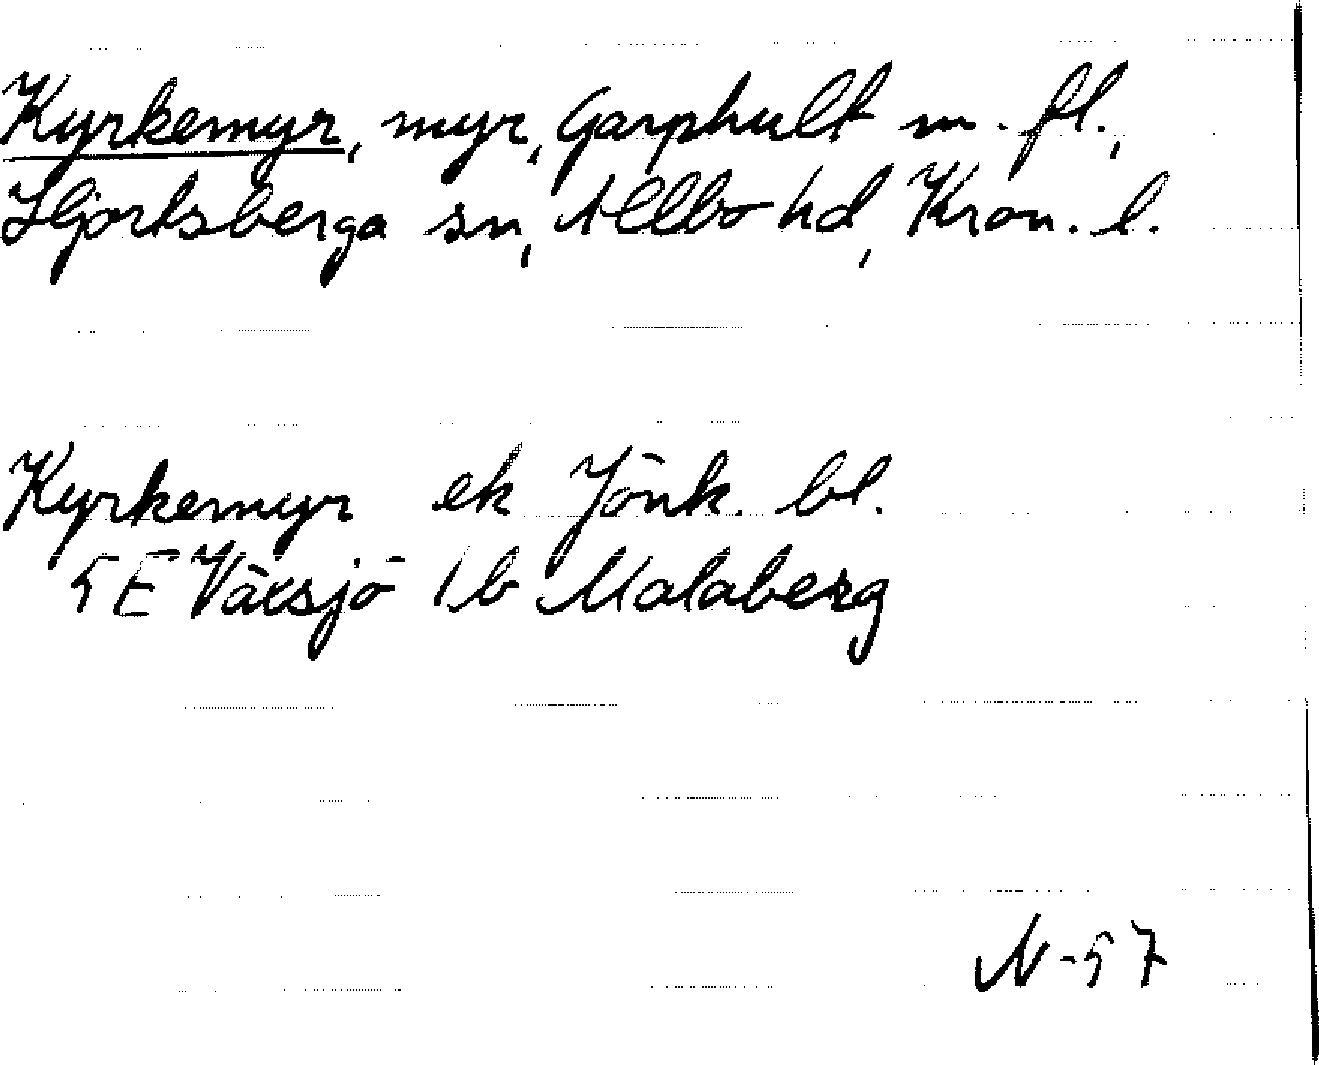 Kyrkemyr, myr, Garphult m. fl.,
Hjortsberga sn, Allbo hd, Kron. l.
Kyrkemyr ek Jönk. bl.
5 E Växsjö 1 b Malaberg
N-57